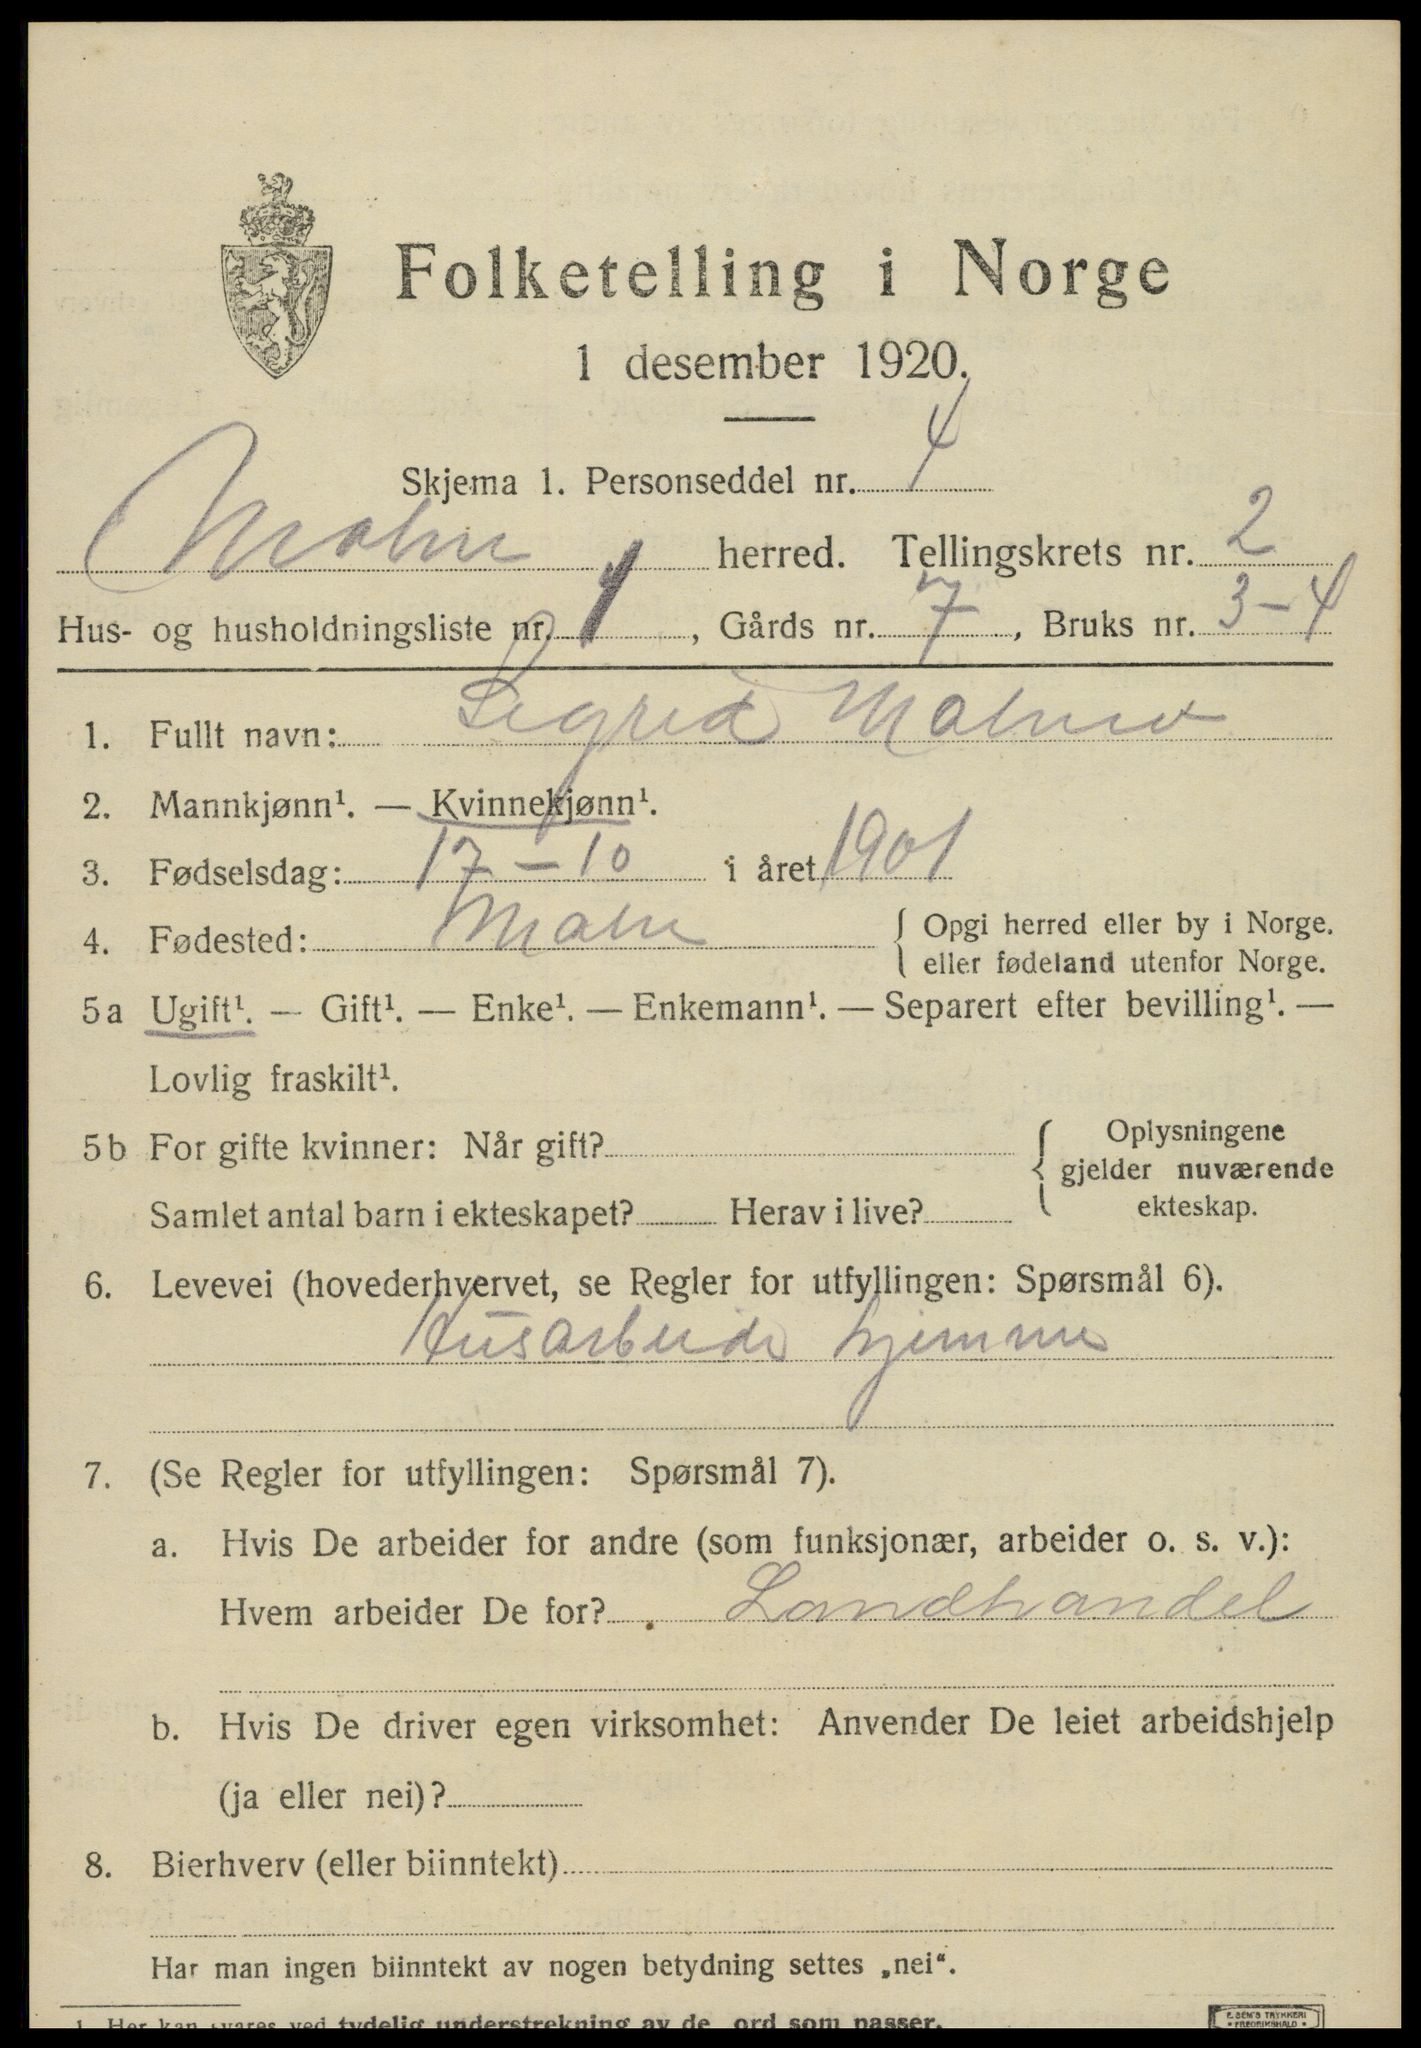 Folketelling i Norge
1 desember 1920.
Skjema 1. Personseddel nr. 4
Malm herred. Tellingskrets nr. 2
Hus- og husholdningsliste nr. , Gårds nr. 7, Bruks nr. 3-4
1. Fullt navn: Sigrid Malmo
2. Mannkjønn¹. — Kvinnekjønn¹.
3. Fødselsdag: 17-10 i året 1901
4. Fødested: Malm { Opgi herred eller by i Norge.
eller fødeland utenfor Norge.
5a Ugift¹. — Gift¹. — Enke¹. — Enkemann¹. — Separert efter bevilling¹. —
Lovlig fraskilt¹.
5b For gifte kvinner: Når gift?
Samlet antal barn i ekteskapet? Herav i live?
{ Oplysningene
gjelder nuværende
ekteskap.
6. Levevei (hovederhvervet, se Regler for utfyllingen: Spørsmål 6).
Husarbeide hjemme
7. (Se Regler for utfyllingen: Spørsmål 7).
a. Hvis De arbeider for andre (som funksjonær, arbeider o. s. v.):
Hvem arbeider De for? Landhandel
b. Hvis De driver egen virksomhet: Anvender De leiet arbeidshjelp
(ja eller nei)?
8. Bierhverv (eller biinntekt)
Har man ingen biinntekt av nogen betydning settes „nei“.
1. Her kan svares ved tydelig understrekning av de ord som passer.
E. SEM'S TRYKKERI
• FREDRIKSHALD •